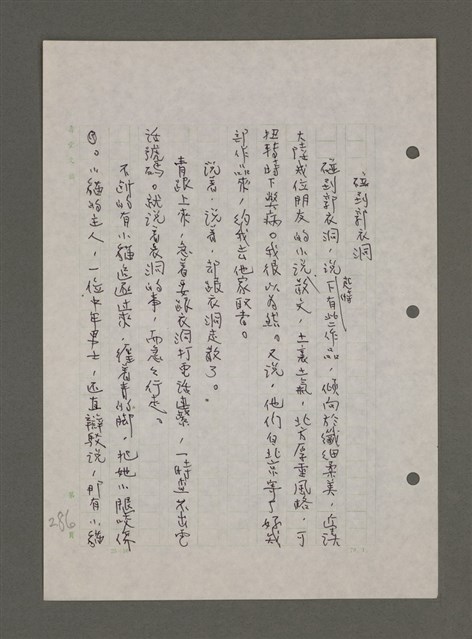 碰到郭衣洞
碰到郭衣洞，說下有些作品，傾向於纖細柔美，近讀
此時
大陸或位朋友的小說散文，土裏土氣，北方厚重風略，可
扭轉時下弊病。我很以為然。又說，他們自北京寄了好幾
部作品來，約我去他家取書。
說著，說着，郭跟衣洞走散了。
青跟上來，急着要跟衣洞打電話連繫，一時查不出電
話號碼。就說看衣洞的事，而急々行走。
不斷的有小貓追逐過來，纏着青的脚，把她小腿咬傷
。小貓的主人，一位中年男士，还直辯駁說，那有小貓
286